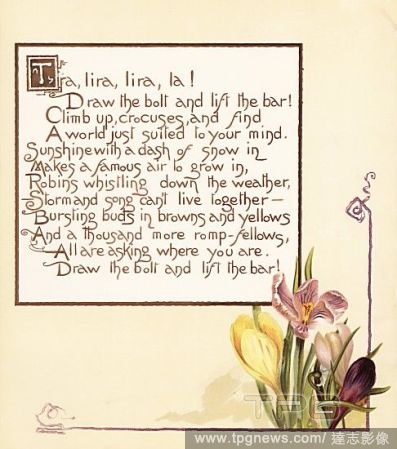 Tira, lira, lira, la!
Draw the bolt and lift the bar!
Climb up, crocuses, and find
A world just suited to your mind.
Sunshine with a dash of snow in
Makes a famous air to grow in,
Robins whistling down the weather,
Storm and song can't live together—
Bursting buds in browns and yellows
And a thousand more romp-fellows,
All are asking where you are.
Draw the bolt and lift the bar!
TPG
www.tpgnews.com/ 達志影像